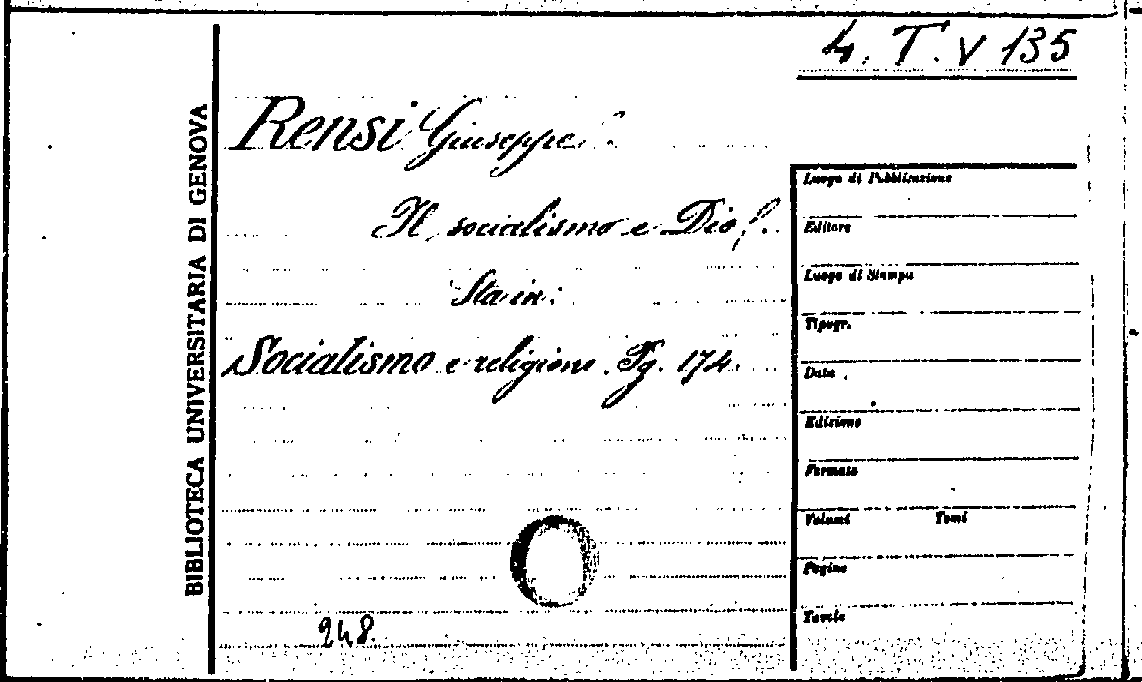 4. T. V 135
BIBLIOTECA UNIVERSITARIA DI GENOVA
Rensi Giuseppe.
Il socialismo e Dio.
Sta in:
Socialismo e religione. Pg. 174.
248.
Luogo di Pubblicazione
Editore
Luogo di Stampa
Tipogr.
Data
Edizione
Formato
Volumi Tomi
Pagine
Tavole